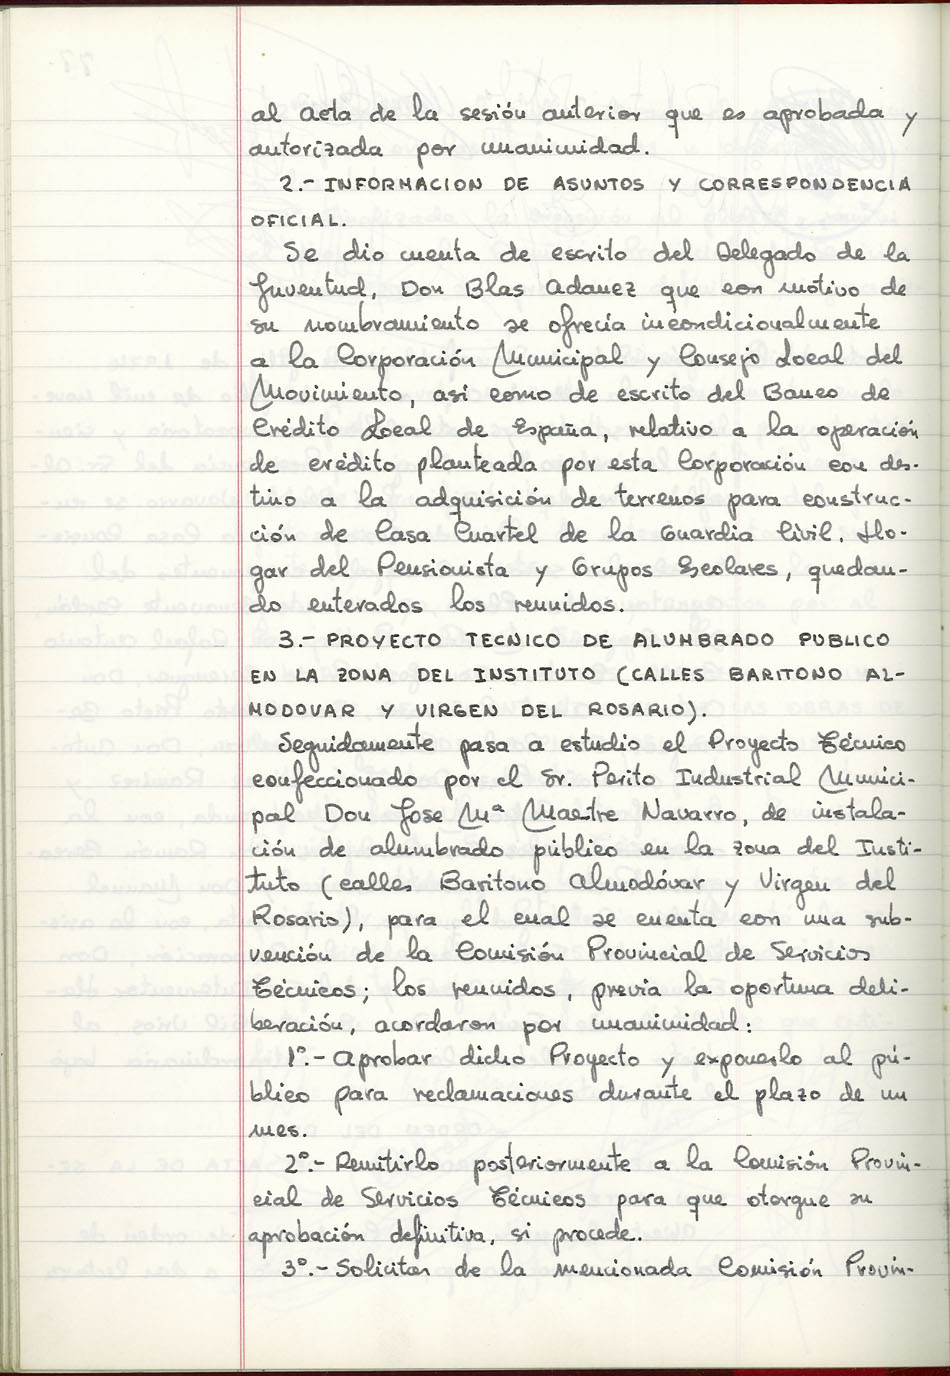 al acta de la sesión anterior que es aprobada y
autorizada por unanimidad.
2.- INFORMACION DE ASUNTOS Y CORRESPONDENCIA
OFICIAL.
Se dio cuenta de escrito del Delegado de la
Juventud, Don Blas Adanez que con motivo de
su nombramiento se ofrecía incondicionalmente
a la Corporación Municipal y Consejo Local del
Movimiento, asi como de escrito del Banco de
Crédito Local de España, relativo a la operación
de crédito planteada por esta Corporación con des-
tino a la adquisición de terrenos para construc-
ción de Casa Cuartel de la Guardia Civil, Ho-
gar del Pensionista y Grupos Escolares, quedan-
do enterados los reunidos.
3.- PROYECTO TECNICO DE ALUMBRADO PUBLICO
EN LA ZONA DEL INSTITUTO (CALLES BARITONO AL-
MODOVAR Y VIRGEN DEL ROSARIO).
Seguidamente pasa a estudio el Proyecto Técnico
confeccionado por el Sr. Perito Industrial Munici-
pal Don Jose Mª Maestre Navarro, de instala-
ción de alumbrado público en la zona del Insti-
tuto (calles Baritono Almodóvar y Virgen del
Rosario), para el cual se cuenta con una sub-
vención de la Comisión Provincial de Servicios
Técnicos; los reunidos, previa la oportuna deli-
beración, acordaron por unanimidad:
1º.- Aprobar dicho Proyecto y exponerlo al pú-
blico para reclamaciones durante el plazo de un
mes.
2º.- Remitirlo posteriormente a la Comisión Provin-
cial de Servicios Técnicos para que otorgue su
aprobación definitiva, si procede.
3º.- Solicitar de la mencionada Comisión Provin-